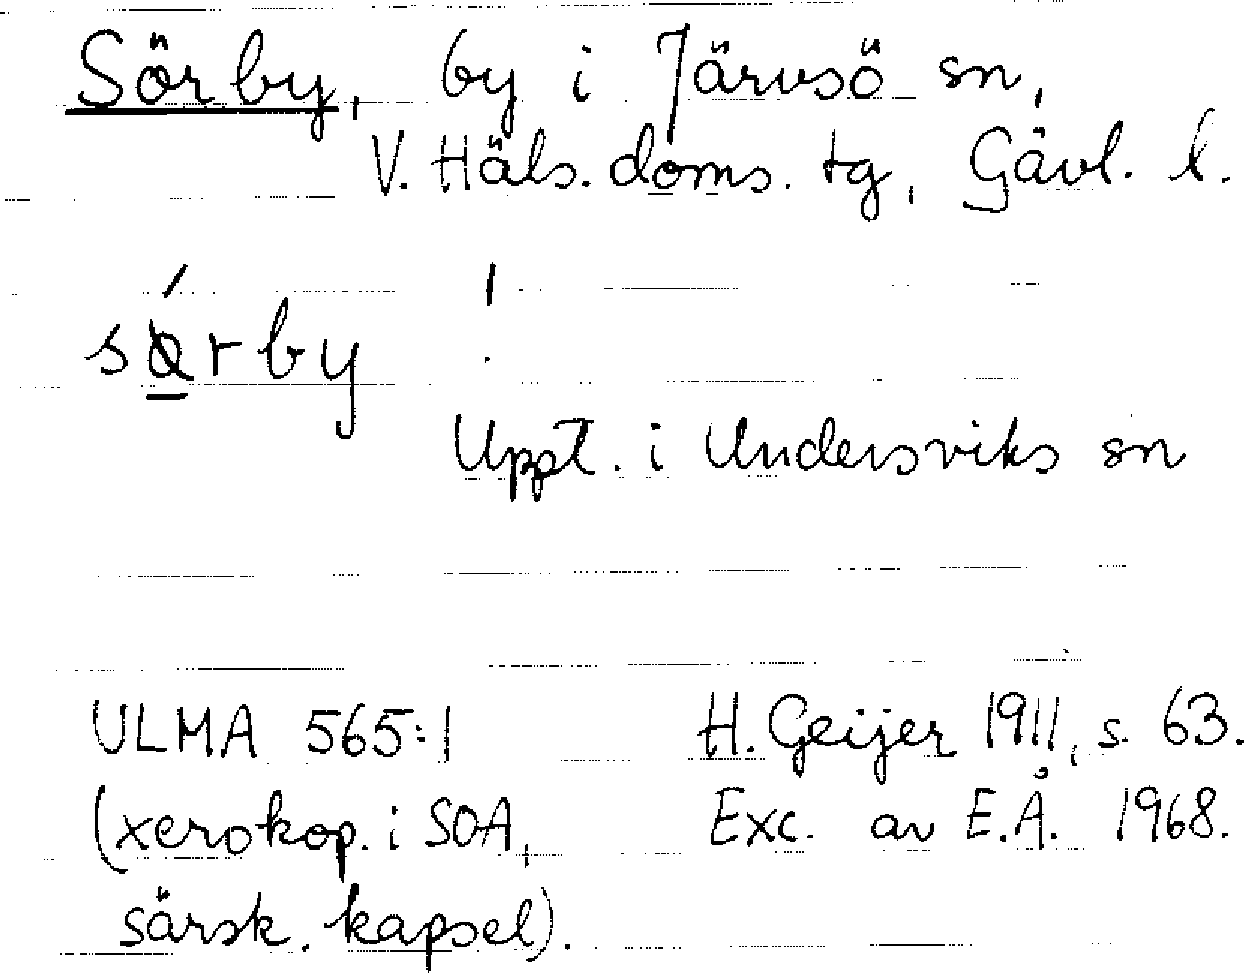 Sörby, by i Järvsö sn,
V. Häls. doms. tg, Gävl. l.
Uppt. i Undersviks sn
ULMA 565:1 H. Geijer 1911, s. 63.
(xerokop. i SOA, Exc. av E.Å. 1968.
särsk. kapsel).